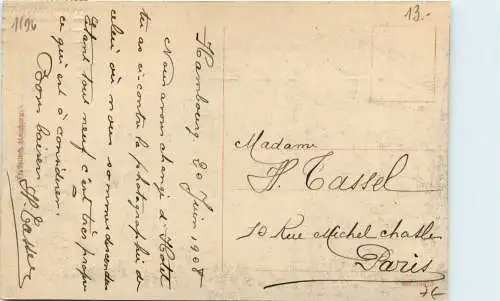 1/96
13.-
Hambourg 20 Juin 1908
Nous avons changé d'Hotel
tu as ci contre la photographie de
celui où nous sommes descendus
Etant tout neuf c'est très propre
ce qui est à considérer.
Bons baisers
H. Tassel
Madame
H. Tassel
10 Rue Michel Chasles
Paris